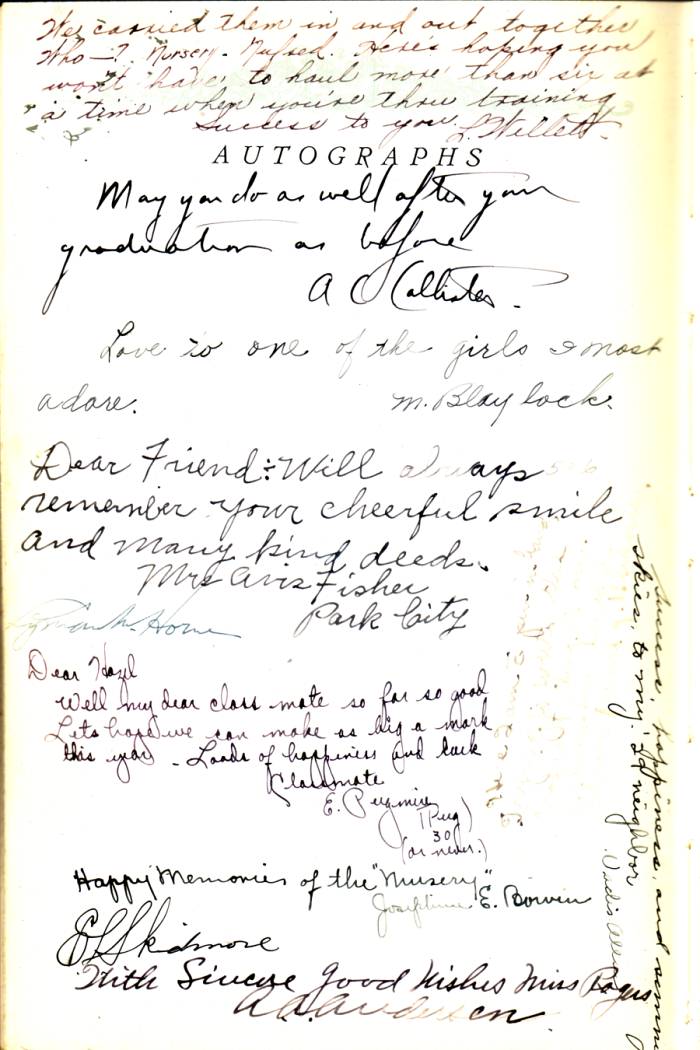 We carried them in and out together
Who—? Nursery - Here's hoping you
won't have to haul more than six at
a time when you're thru training
Success to you L. Willets.
AUTOGRAPHS
May you do as well after your
graduation as before
A C Callister.
Love to one of the girls I most
adore. M. Blaylock.
Dear Friend:- Will always
remember your cheerful smile
and many kind deeds.
Mrs Avis Fisher
Park City
Horne
Dear Hazel
Well my dear class mate so far so good
Lets hope we can make as big a mark
this year - Loads of happiness and luck
Classmate
E. Pugmire
(Pug)
30
(or never.)
Happy Memories of the "Nursery"
Josephine E. Bowin
E L Skidmore
With Sincere Good Wishes Miss Rogers
A. A. Anderson
Success, happiness, and
skies, to my neighbor